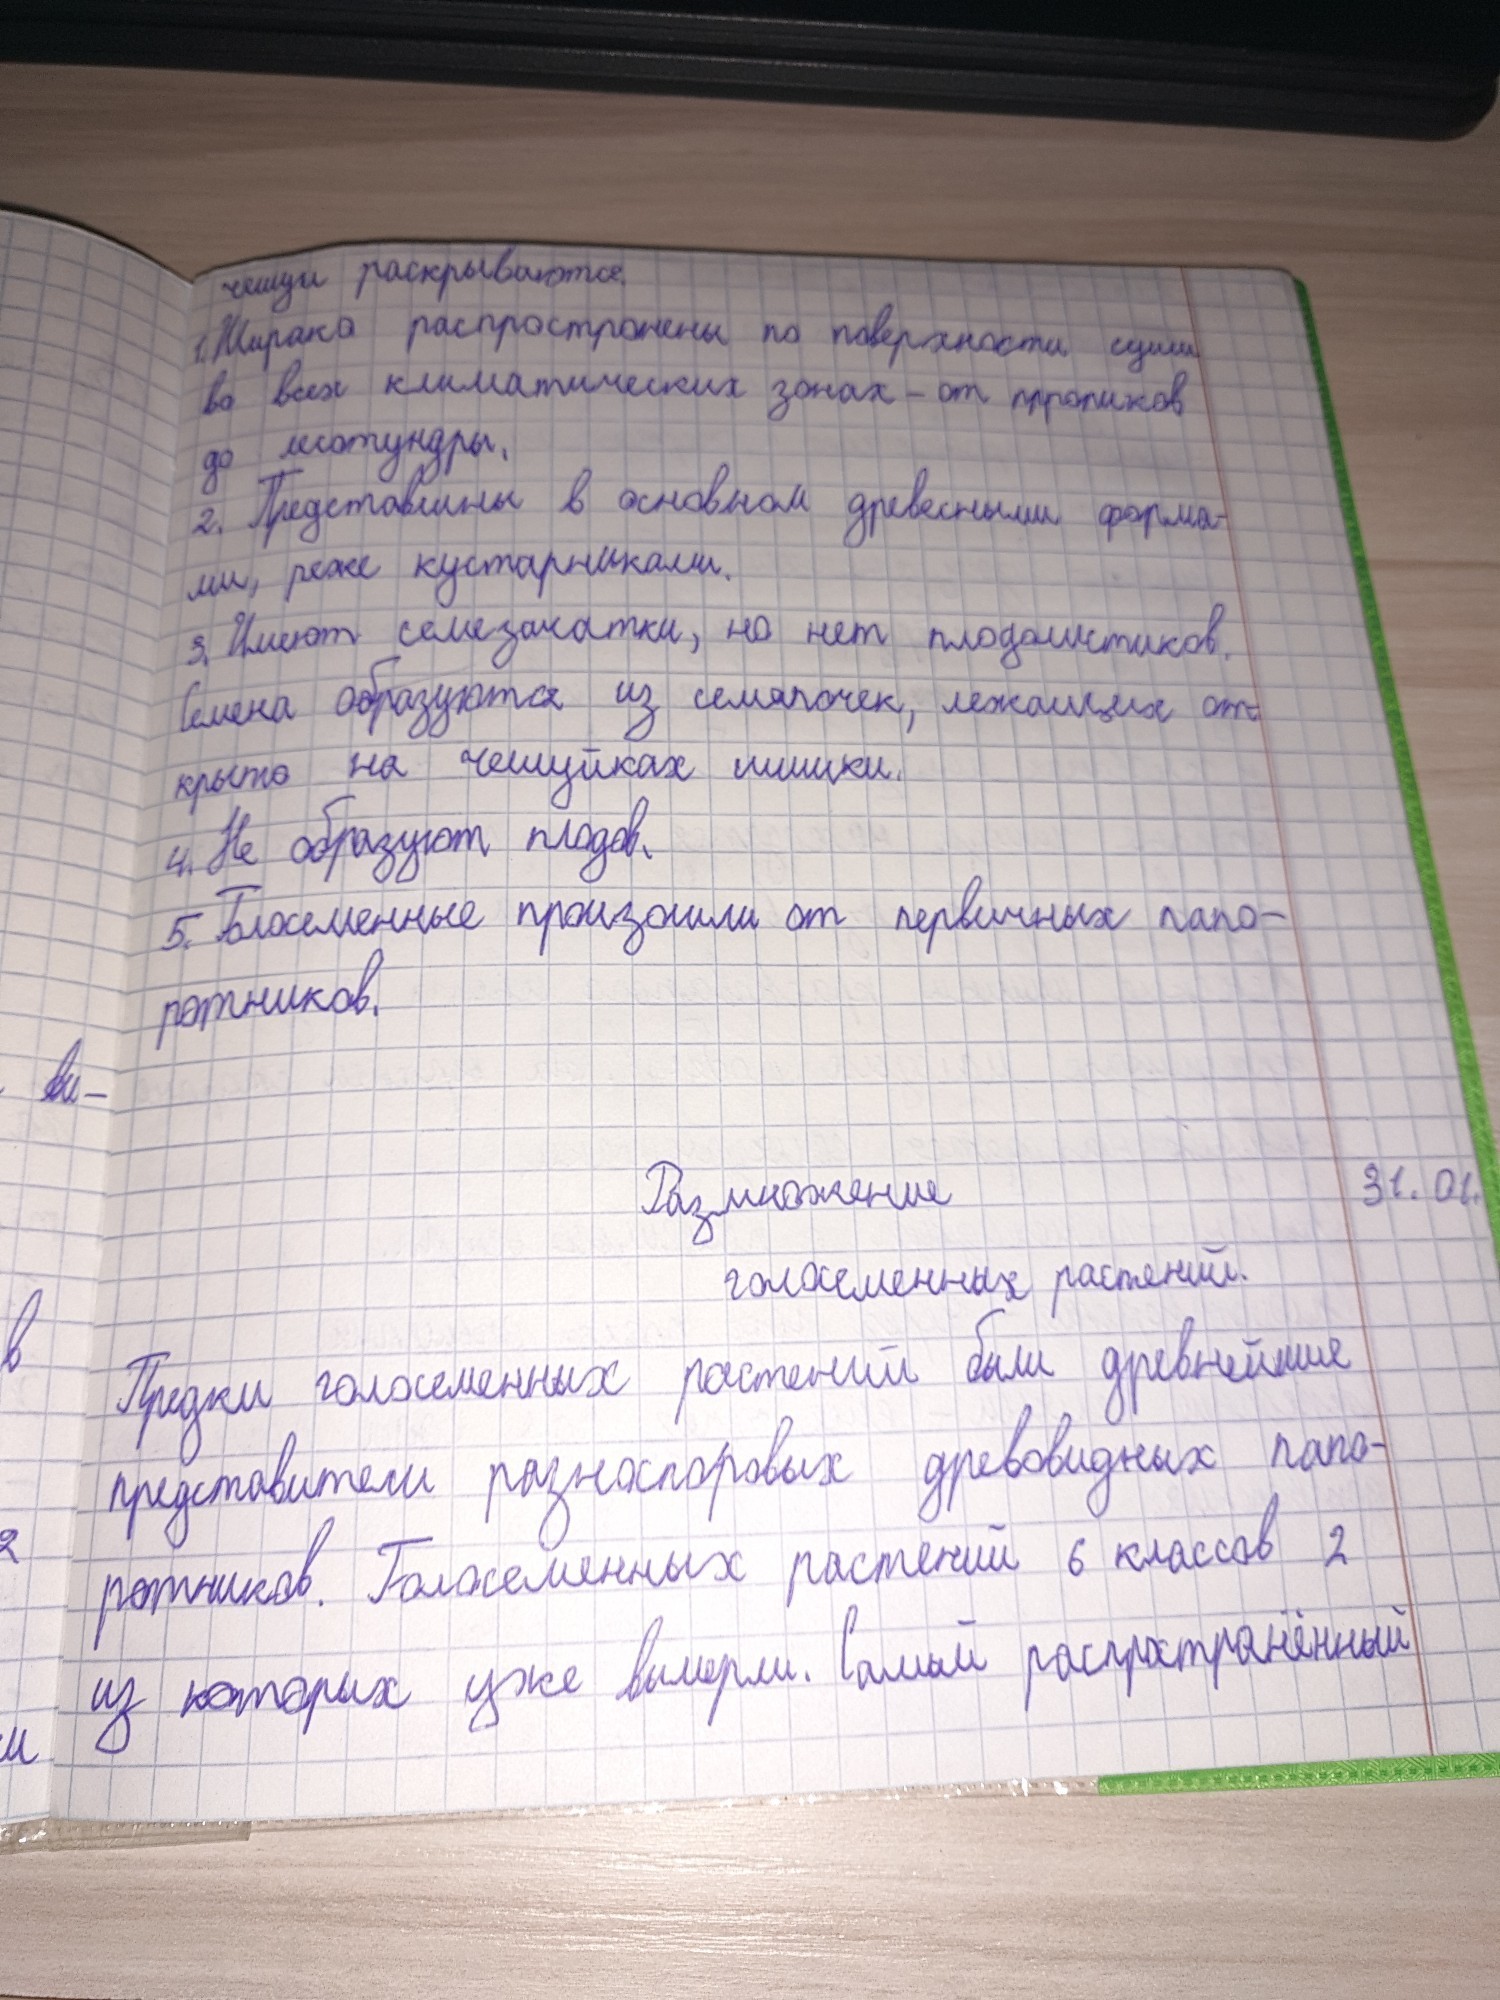 чешуи раскрываются.
1. Широко распространены по поверхности суши
во всех климатических зонах – от тропиков
до лесотундры.
2. Представлены в основном древесными форма-
ми, реже кустарниками.
3. Имеют семезачатки, но нет плодолистиков.
Семена образуются из семяпочек, лежащих от-
крыто на чешуйках шишки.
4. Не образуют плодов.
5. Голосеменные произошли от первичных папо-
ротников.
Размножение 31.01.
голосеменных растений.
Предки голосеменных растений были древнейшие
представители разноспоровых древовидных папо-
ротников. Голосеменных растений 6 классов 2
из которых уже вымерли. Самый распространённый
ви-
в
2